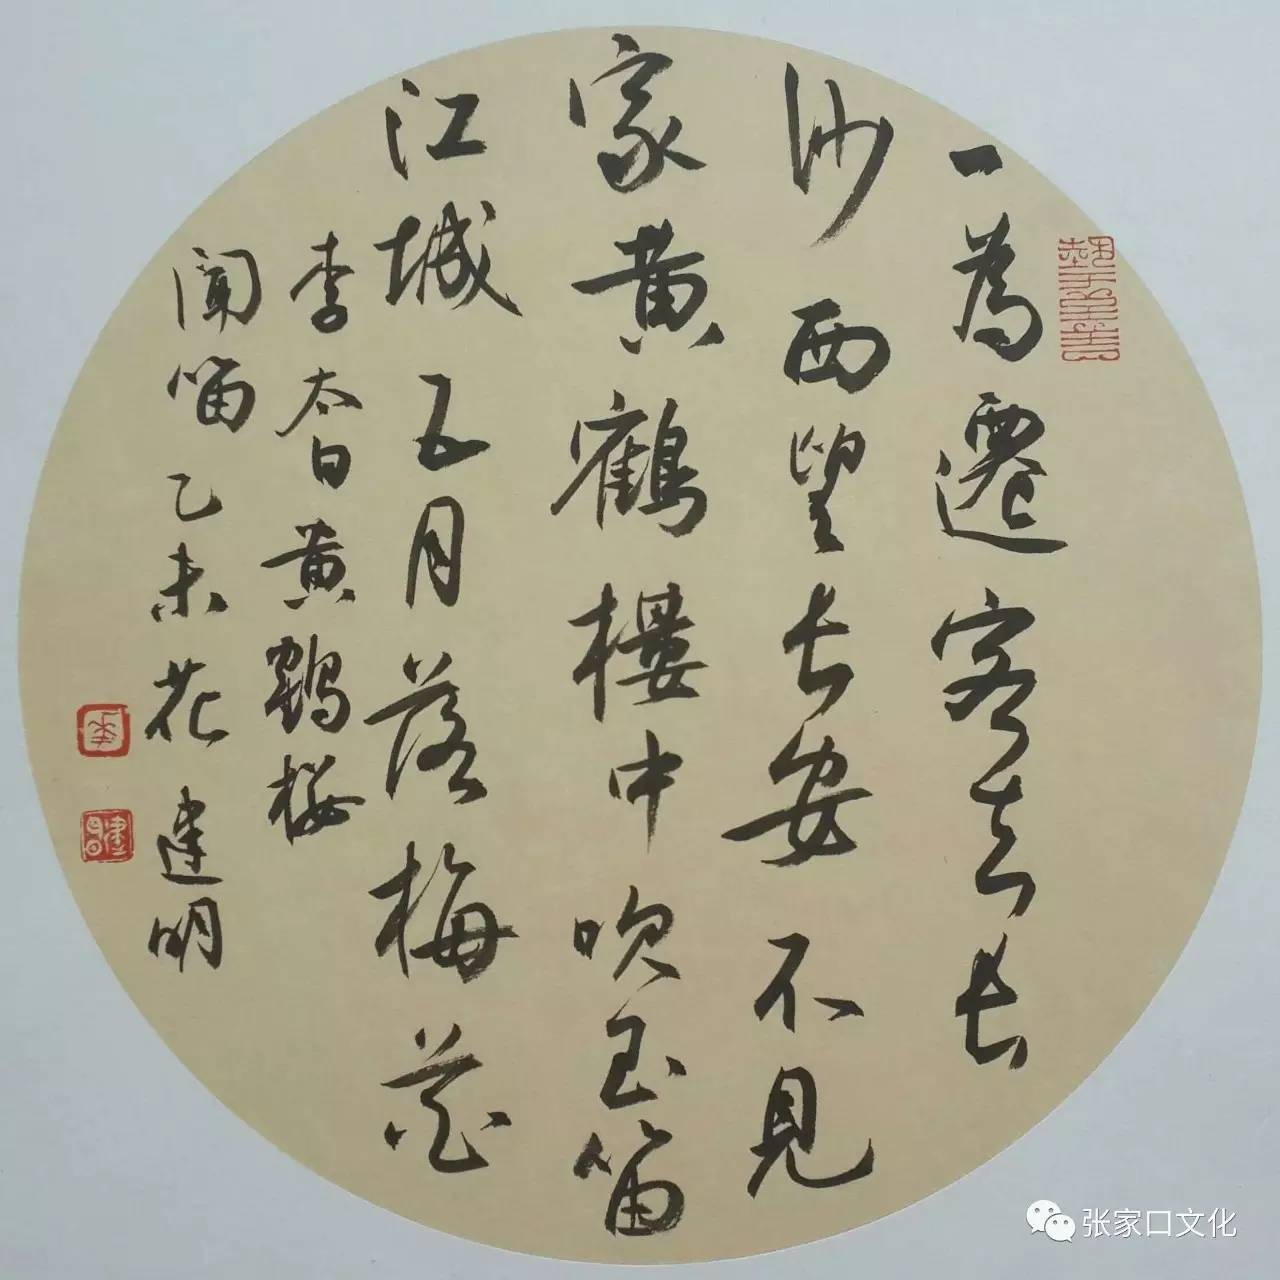 一為遷客去長
沙西望長安不見
家黄鶴樓中吹玉笛
江城五月落梅花
李太白黄鶴楼
闻笛乙未花建明
张家口文化